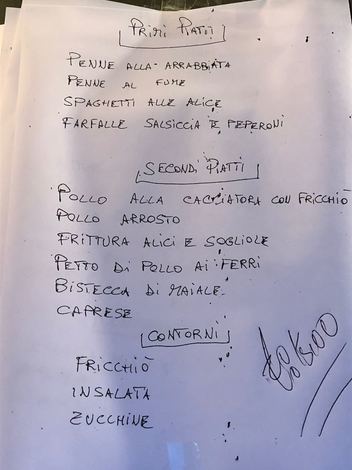 PRIMI PIATTI
PENNE ALLA ARRABBIATA
PENNE AL FUME
SPAGHETTI ALLE ALICE
FARFALLE SALSICCIA E PEPERONI
SECONDI PIATTI
POLLO ALLA CACCIATORA CON FRICCHIÒ
POLLO ARROSTO
FRITTURA ALICI E SOGLIOLE
PETTO DI POLLO AI FERRI
BISTECCA DI MAIALE
CAPRESE
CONTORNI
FRICCHIÒ
INSALATA
ZUCCHINE